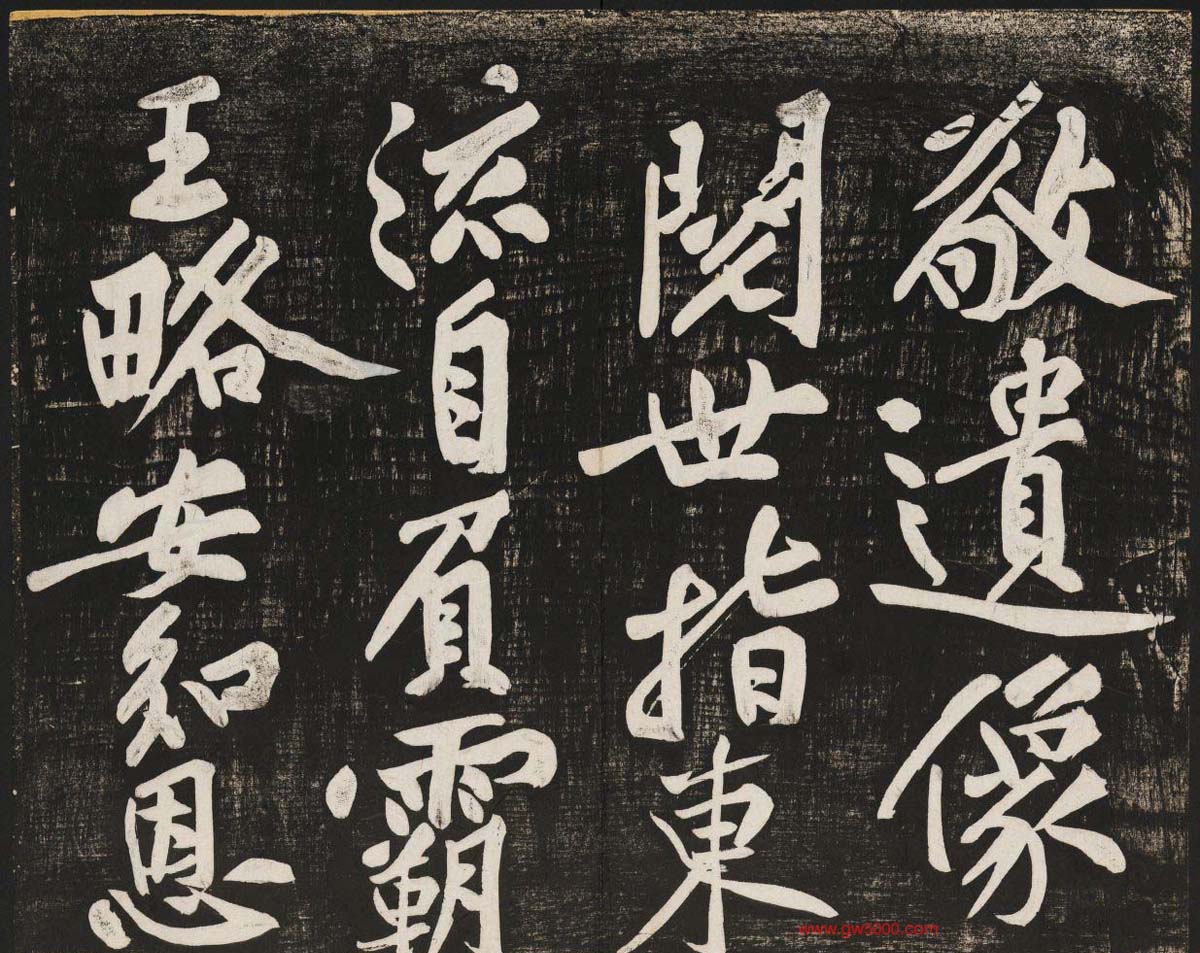 敬遺像
閱世指東
流自負霸
王略安知恩
www.gw5000.com